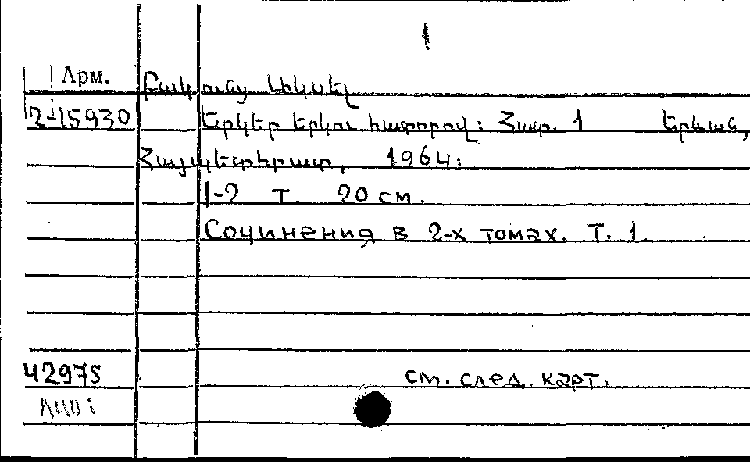 1
Арм.
2-15930
Երկեր երկու հատորով: Հատ. 1 Երևան,
Հայպետհրատ, 1964:
1-2 т. 20 см.
Сочинения в 2-х томах. Т. 1.
42975
см. след. карт.